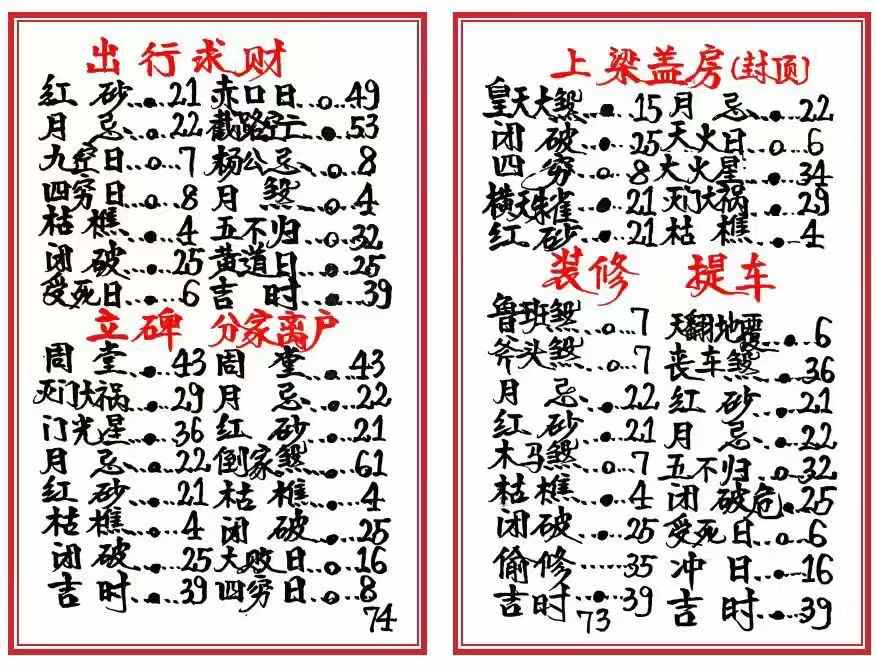 出行求财
红砂......21 赤口日...49
月忌......22 截路空亡...53
九空日...7 杨公忌...8
四穷日...8 月煞...4
枯樵...4 五不归...32
闭破...25 黄道日...25
受死日...6 吉时...39
立碑 分家离户
周堂...43 周堂...43
灭门大祸...29 月忌...22
门光星...36 红砂...21
月忌...22 倒家煞...61
红砂...21 枯樵...4
枯樵...4 闭破...25
闭破...25 大败日...16
吉时...39 四穷日...8
74
上梁盖房(封顶)
皇天大煞...15 月忌...22
闭破...25 天火日 6
四穷...8 大火星...34
横天朱雀...21 灭门大祸...29
红砂...21 枯樵...4
装修 提车
鲁班煞...7 天翻地覆...6
斧头煞...7 丧车煞...36
月忌...22 红砂...21
红砂...21 月忌...22
木马煞...7 五不归...32
枯樵...4 闭破危...25
闭破...25 受死日...6
偷修...35 冲日...16
吉时...39 吉时...39
73